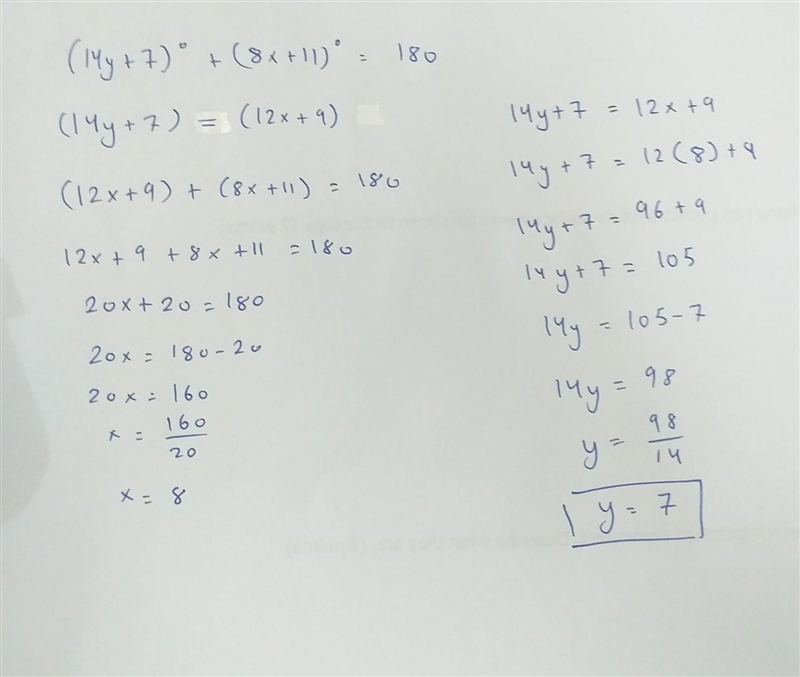 (14y+7)° + (8x+11)° = 180
(14y+7) = (12x+9)
(12x+9) + (8x+11) = 180
12x+9 + 8x+11 = 180
20x+20 = 180
20x = 180-20
20x = 160
x = 160/20
x = 8
14y+7 = 12x+9
14y+7 = 12(8)+9
14y+7 = 96+9
14y+7 = 105
14y = 105-7
14y = 98
y = 98/14
y = 7